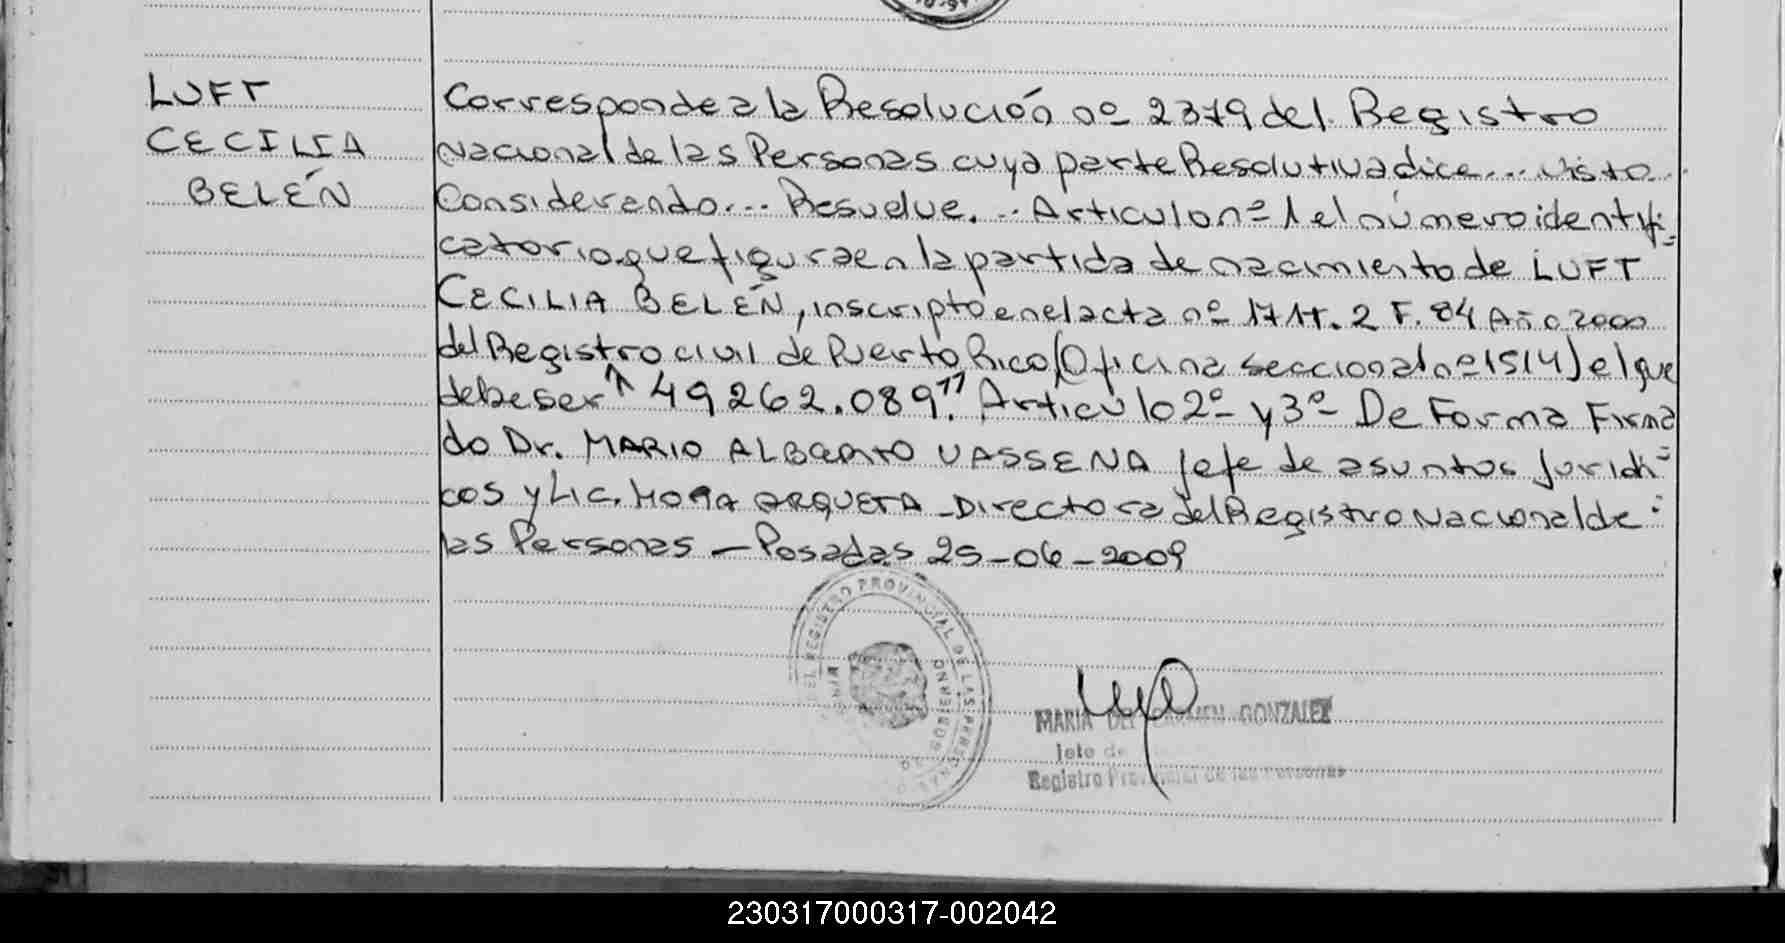 LUFT
CECILIA
BELÉN
Corresponde a la Resolución nº 2379 del Registro
Nacional de las Personas cuya parte Resolutiva dice... visto
Considerando... Resuelve... Articulo nº 1 el número identifi
catorio que figura en la partida de nacimiento de LUFT
CECILIA BELÉN, inscripto en el acta nº 171 T. 2 F. 84 Año 2000
del Registro civil de Puerto Rico (Oficina seccional nº 1514) el que
debe ser "49262.089". Articulo 2º y 3º De Forma Firma
do Dr. MARIO ALBERTO VASSENA Jefe de asuntos Juridi=
cos y Lic. ARQUETA - Directora del Registro Nacional de =
las Personas - Posadas 25-06-2009
DEL REGISTRO PROVINCIAL DE LAS PERSONAS
MARIA DEL CARMEN GONZALEZ
Jefe de
Registro Provincial de las Personas
230317000317-002042